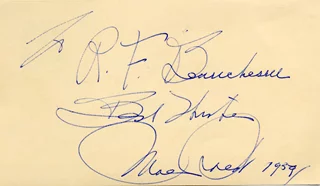 To
R. F. Beauchesne
Best Wishes
Mae West 1959